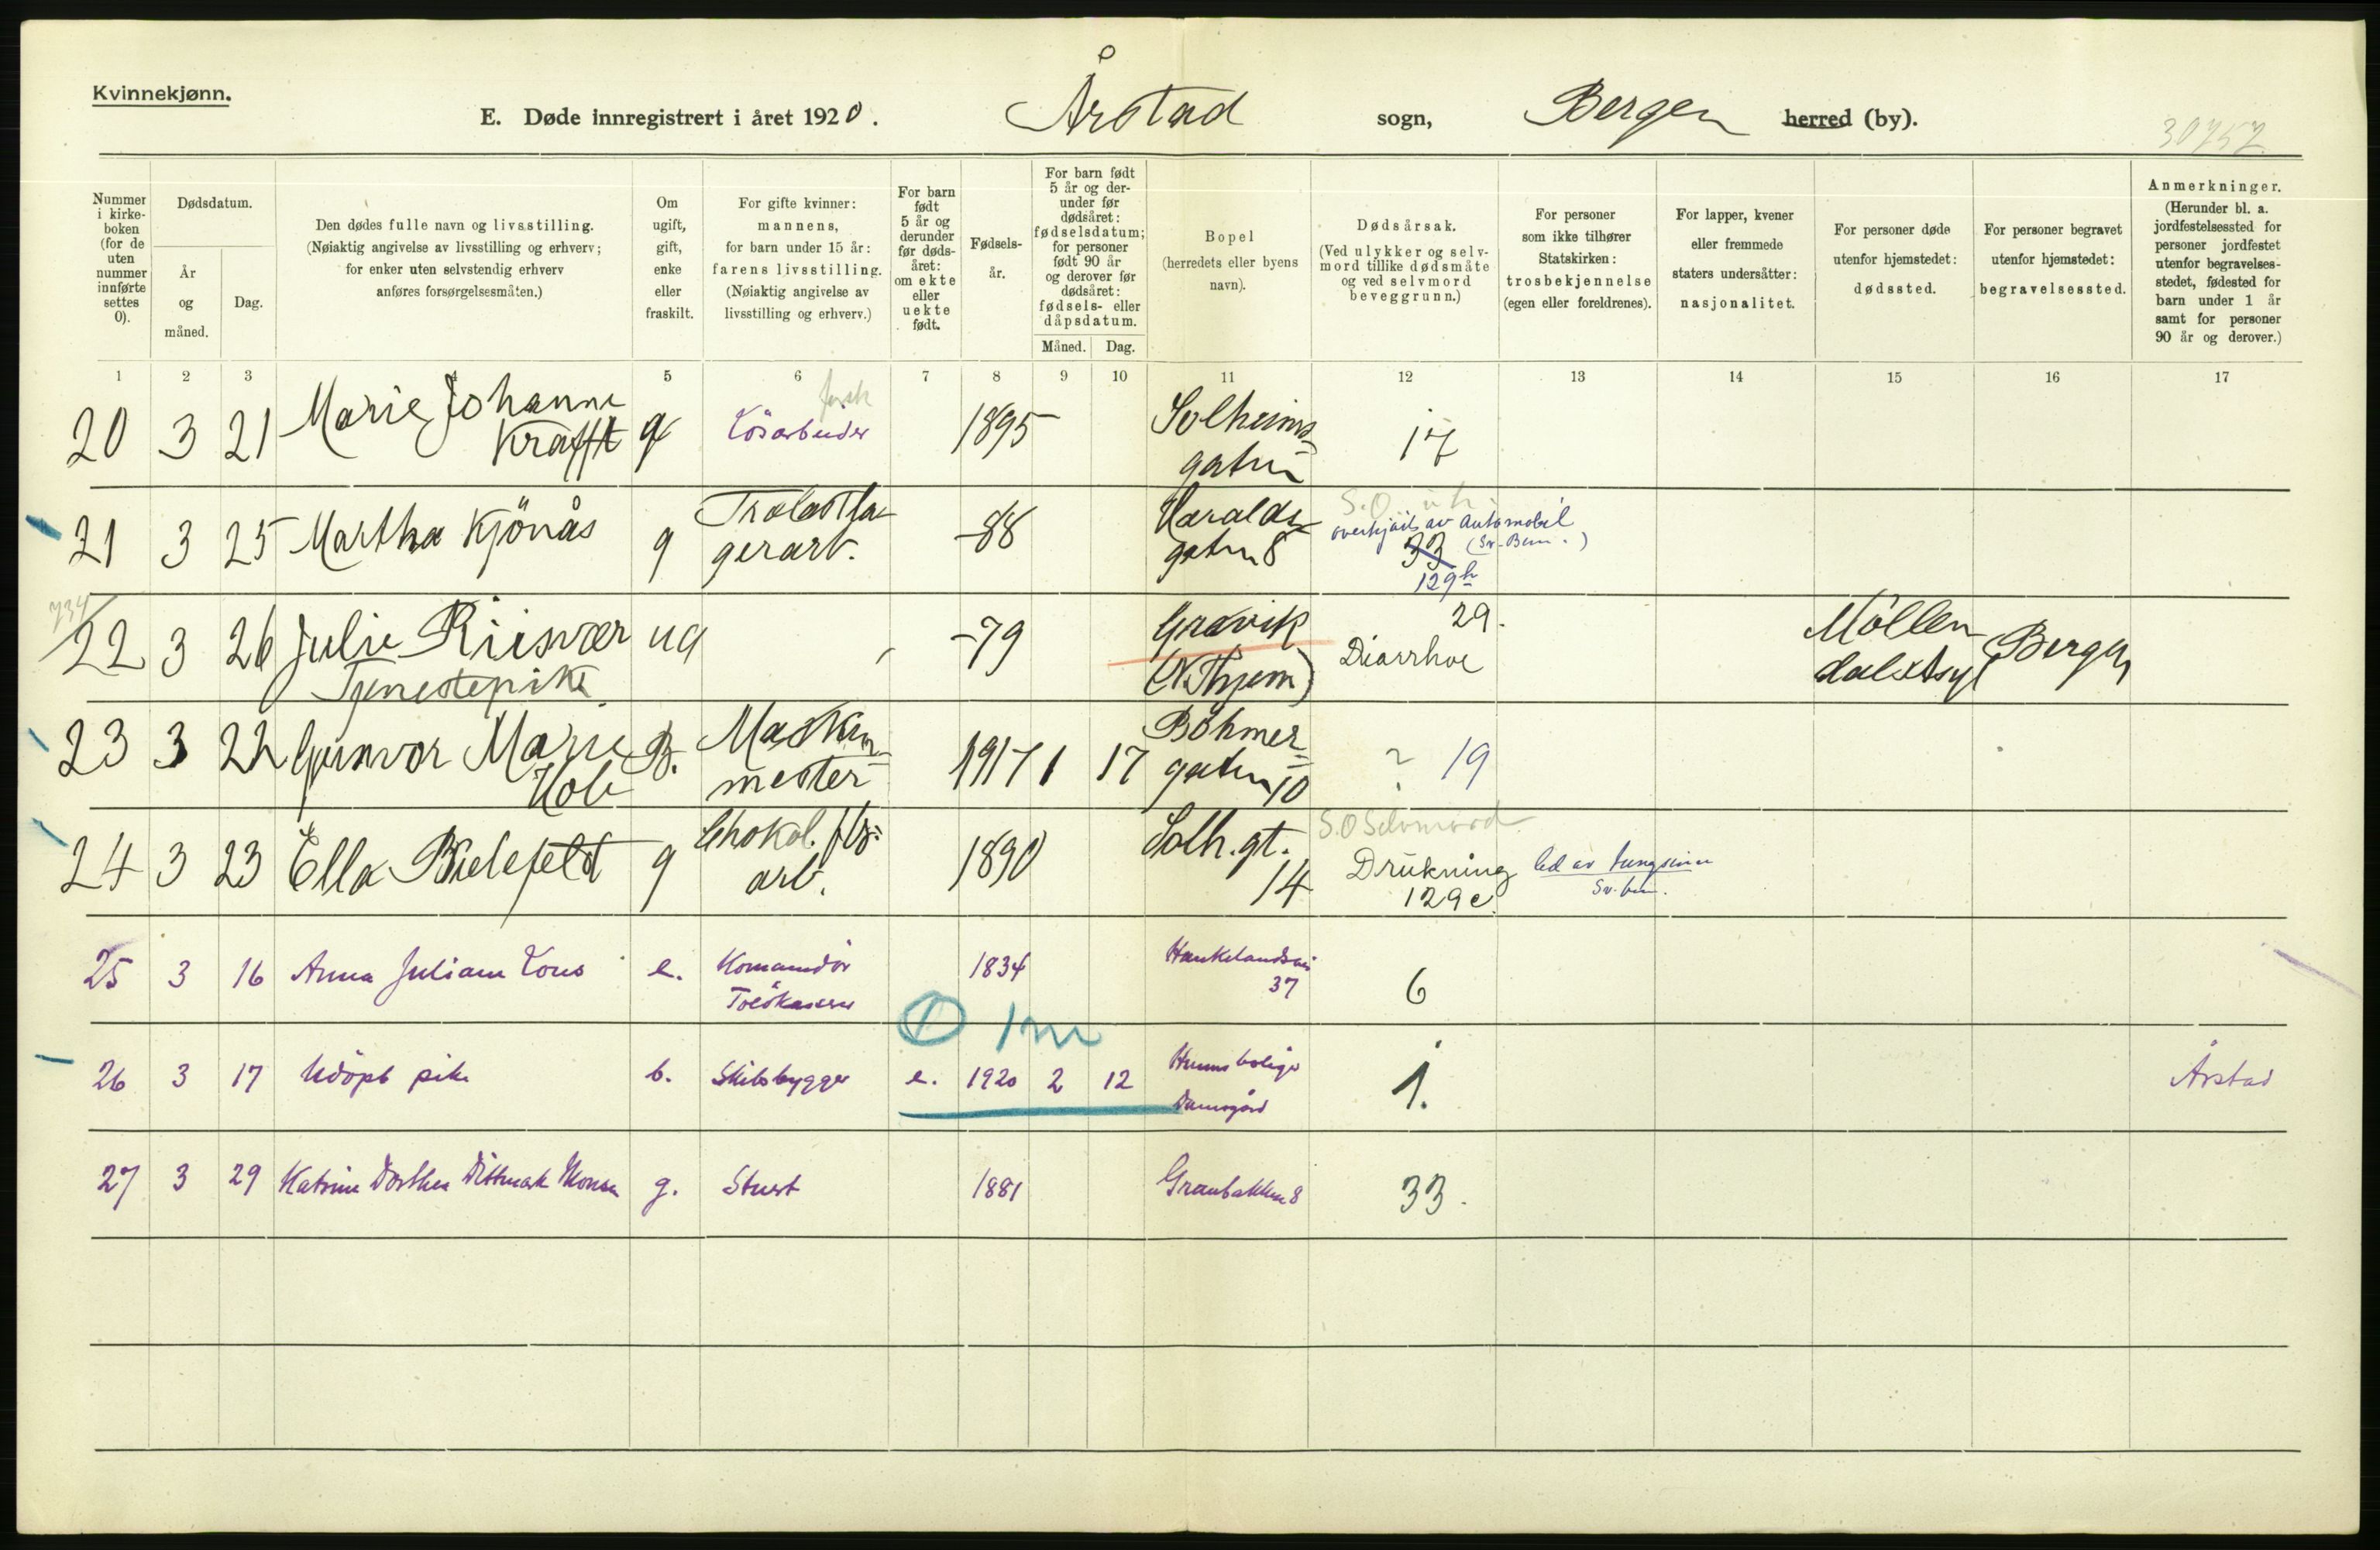 Kvinnekjønn.
E. Døde innregistrert i året 1920. Årstad sogn, Bergen herred (by).
30757
Nummer i kirkeboken (for de uten nummer innførte settes 0).
Dødsdatum.
År og måned.
Dag.
Den dødes fulle navn og livsstilling.
(Nøiaktig angivelse av livsstilling og erhverv;
for enker uten selvstendig erhverv
anføres forsørgelsesmåten.)
Om ugift, gift, enke eller fraskilt.
For gifte kvinner:
mannens,
for barn under 15 år:
farens livsstilling.
(Nøiaktig angivelse av
livsstilling og erhverv.)
For barn født 5 år og derunder før dødsåret: om ekte eller uekte født.
Fødselsår.
For barn født 5 år og derunder før dødsåret: fødselsdatum; for personer født 90 år og derover før dødsåret: fødsels- eller dåpsdatum.
Måned. Dag.
Bopel
(herredets eller byens
navn).
Dødsårsak.
(Ved ulykker og selvmord tillike dødsmåte og ved selvmord beveggrunn.)
For personer
som ikke tilhører
Statskirken:
trosbekjennelse
(egen eller foreldrenes).
For lapper, kvener
eller fremmede
staters undersåtter:
nasjonalitet.
For personer døde
utenfor hjemstedet:
dødssted.
For personer begravet
utenfor hjemstedet:
begravelsessted.
Anmerkninger.
(Herunder bl. a.
jordfestelsessted for
personer jordfestet
utenfor begravelsesstedet, fødested for
barn under 1 år
samt for personer
90 år og derover.)
1 2 3 4 5 6 7 8 9 10 11 12 13 14 15 16 17
20 3 21 Marie Johanne Krafft g Lösarbeider 1895 Solheimsgaten 17
21 3 25 Martha Kjönås g gerarb. -88 Haraldsgaten 8 S.O. overkjört av automobil 33 129h
734
22 3 26 Julie Riisnær Tjenestepike ug -79 Gravik (N.Thjem) 29. Diarrhoe Möllendalsasyl Bergen
23 3 22 Gunvor Marie Hole B. Maskinmester 1917 1 17 Böhmergaten 10 ? 19
24 3 23 Ella Bielefeldt g Chokol. arb. 1890 Solh.gt. 14 S.O Selvmord Drukning 129e led av tungsinn
25 3 16 Anna Juliane Lous e. Komandör Tolökasserer 1834 Haukelandsvei 37 6
1 m
26 3 17 Udöpt pike b. Skibsbygger e. 1920 2 12 Damsgård 1. Årstad
27 3 29 Katrine Dorthea Dittmark Monsen g. Stuert 1881 Granbakken 8 33.